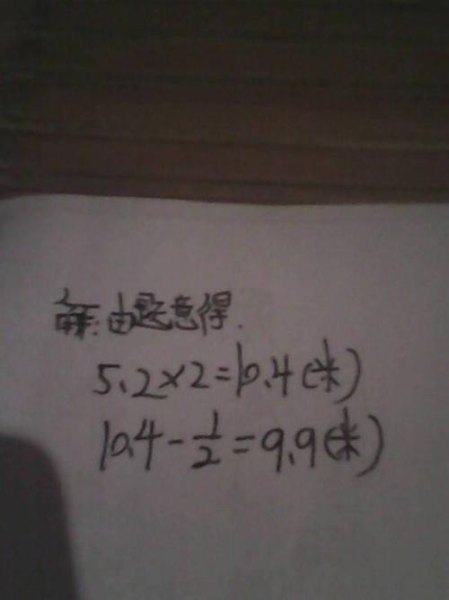 解:由题意得.
5.2×2=10.4(米)
10.4-1/2=9.9(米)